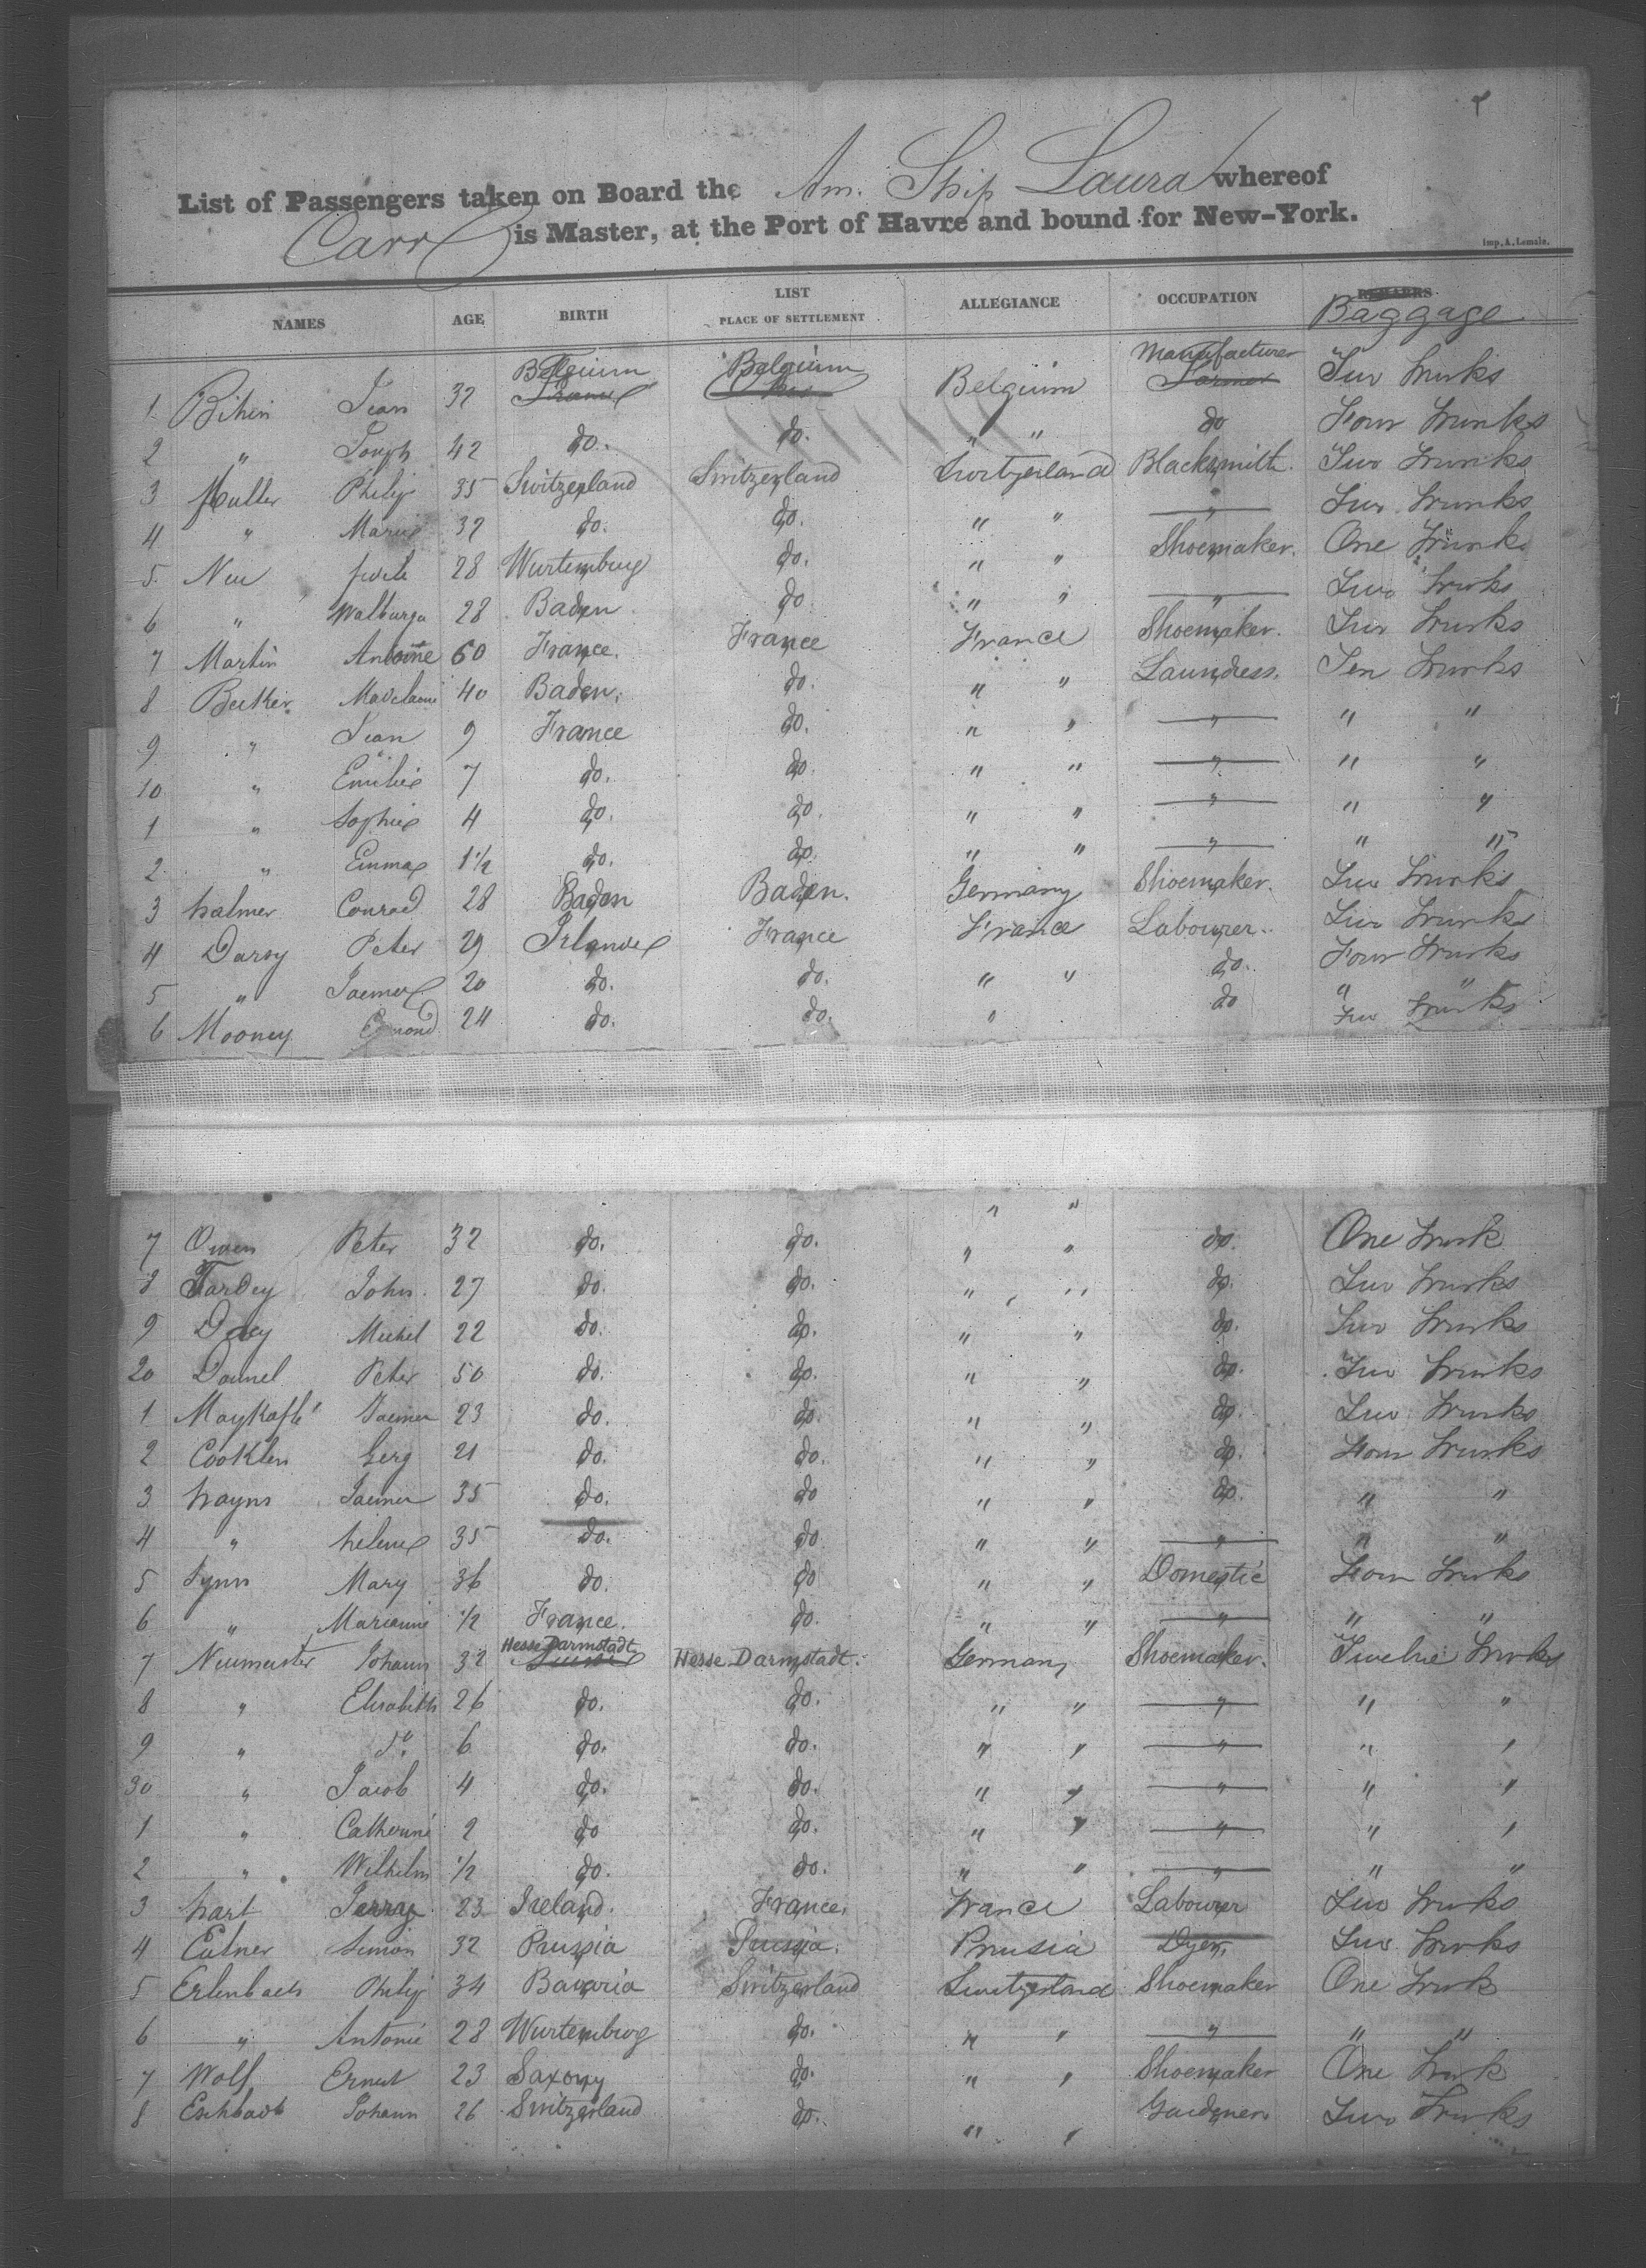 List of Passengers taken on Board the Am. Ship Laura whereof
Carr is Master, at the Port of Havre and bound for New-York.
Imp. A. Lemale.
NAMES AGE BIRTH LIST PLACE OF SETTLEMENT ALLEGIANCE OCCUPATION REMARKS Baggage
1 Bihin Jean 32 Belgium Belgium Belgium Manufacturer Two trunks
2 " Joseph 42 do. do. " " do Four trunks
3 Muller Philip 35 Switzerland Switzerland Switzerland Blacksmith. Two trunks
4 " Marie 32 do. do. " " " Two trunks
5 Neu 28 Wurtemburg do. " " Shoemaker. One trunk
6 " Walburga 28 Baden do " " " Two trunks
7 Martin Antoine 60 France. France France Shoemaker. Two trunks
8 Becker Madelaine 40 Baden. do. " " Laundress. Ten trunks
9 " Jean 9 France do. " " " " "
10 " Emilie 7 do. do. " " " " "
1 " Sophie 4 do. do. " " " " "
2 " Emma 1 1/2 do. do. " " " " "
3 halmer Conrad 28 Baden Baden. Germany Shoemaker. Two trunks
4 Darcy Peter 29 Irlande France France Labourer. Two trunks
5 " 20 do. do. " " do. Four trunks
6 Mooney Edmond 24 do. do. " do " "
Two trunks
" "
7 Owen Peter 32 do. do. " " do. One trunk
8 Fardey John 27 do. do. " " do. Two trunks
9 Michel 22 do. do. " " do. Two trunks
20 Peter 50 do. do. " " do. Two trunks
1 23 do. do. " " do. Two trunks
2 Cooklen Gerg 21 do. do. " " do. Four trunks
3 hayns 35 do. do " " do. " "
4 " helene 35 do. do " " " " "
5 Lynn Mary 36 do. do " " Domestic Four trunks
6 " Marianne 1/2 France. do. " " " " "
7 Neumeister Johann 32 Hesse Darmstadt Hesse Darmstadt. Germany Shoemaker. Twelve trunks
8 " Elisabeth 26 do. do. " " " " "
9 " do 6 do. do. " " " " "
30 " Jacob 4 do. do. " " " " "
1 " Catherine 2 do do. " " " " "
2 " Wilhelm 1/2 do. do. " " " " "
3 hart Jerry 23 Ireland. France. France Labourer Two trunks
4 Eulner Simon 32 Prussia Prussia. Prussia Dyer. Two trunks
5 Erlenbach Philip 34 Bavaria Switzerland Switzerland Shoemaker One trunk
6 " Antonie 28 Wurtemburg do. " " " " "
7 Wolf Ernest 23 Saxony do. " " Shoemaker One trunk
8 Eschbach Johann 26 Switzerland do. " " Gardener. Two trunks